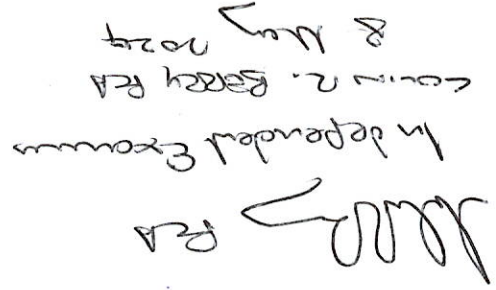 FCA
Independent Examiner
Colin R. Berry FCA
8 May 2024